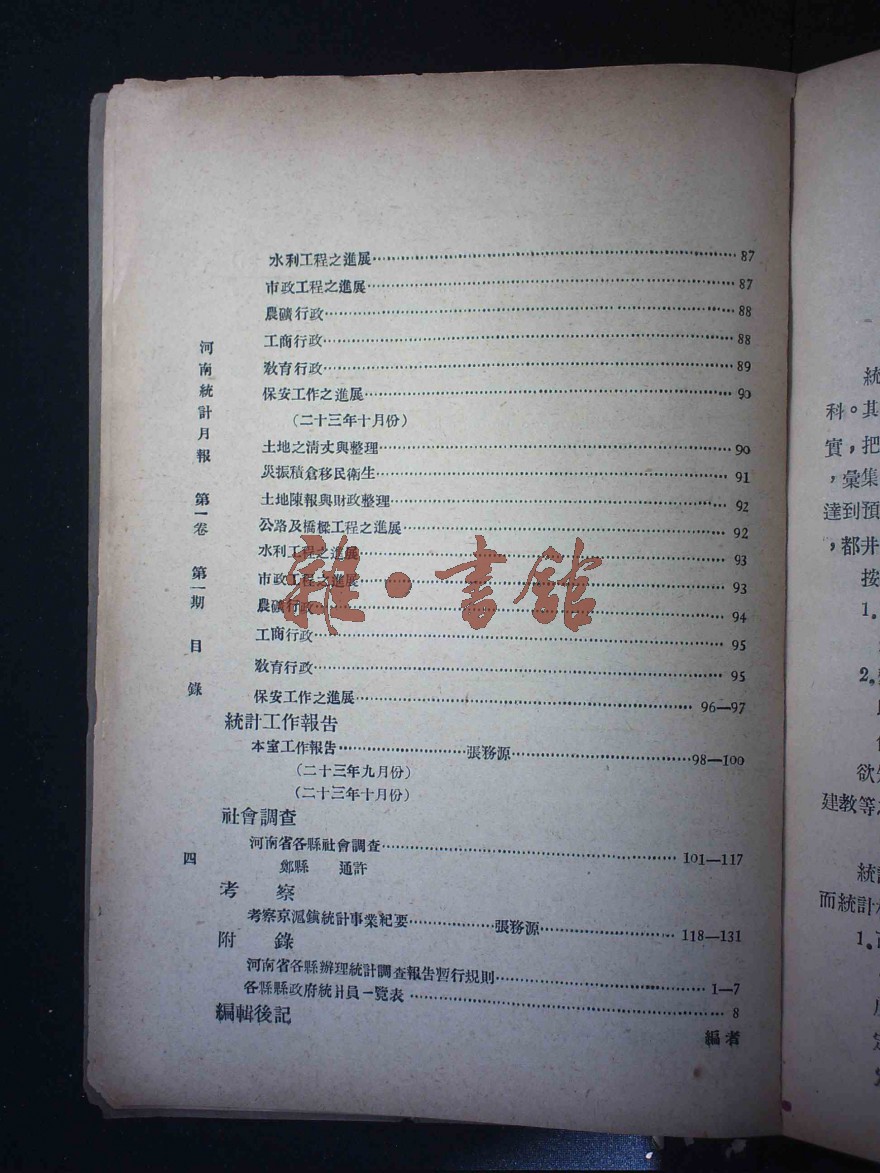 水利工程之進展 87
市政工程之進展 87
農礦行政 88
工商行政 88
敎育行政 89
保安工作之進展 90
(二十三年十月份)
土地之淸丈與整理 90
災振積倉移民衛生 91
土地陳報與財政整理 92
公路及橋樑工程之進展 92
水利工程之進展 93
市政工程之進展 93
農礦行政 94
工商行政 95
敎育行政 95
保安工作之進展 96—97
統計工作報告
本室工作報告 張務源 98—100
(二十三年九月份)
(二十三年十月份)
社會調查
河南省各縣社會調查 101—117
鄭縣 通許
考察
考察京滬鎮統計事業紀要 張務源 118—131
附錄
河南省各縣辦理統計調查報告暫行規則 1—7
各縣縣政府統計員一覽表 8
編輯後記
編者
河南統計月報 第一卷 第一期 目錄
四
雜·書館
統
科。其
實,把
,彙集
達到預
,都井
按
1.
2.
欲
建教等
統
而統計
1.